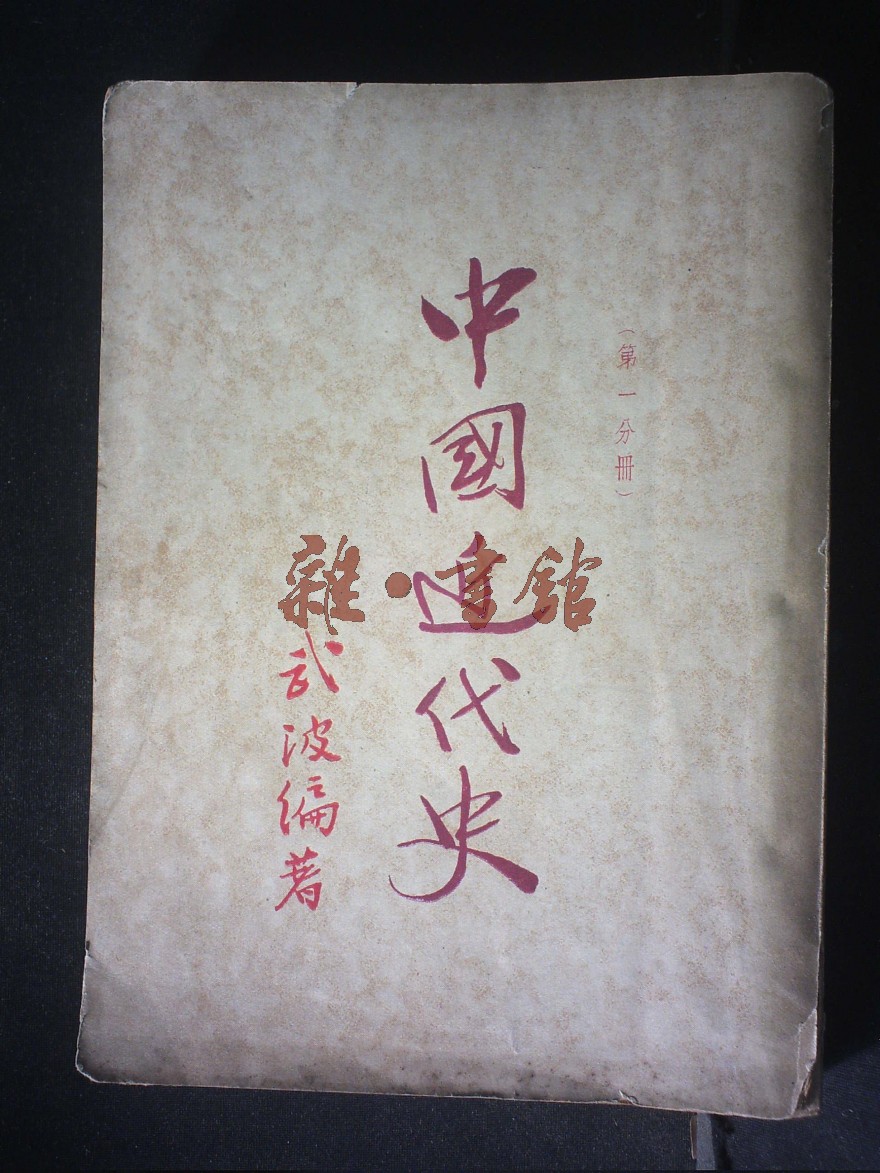 （第一分冊）
中國近代史
武波编著
雜·書館